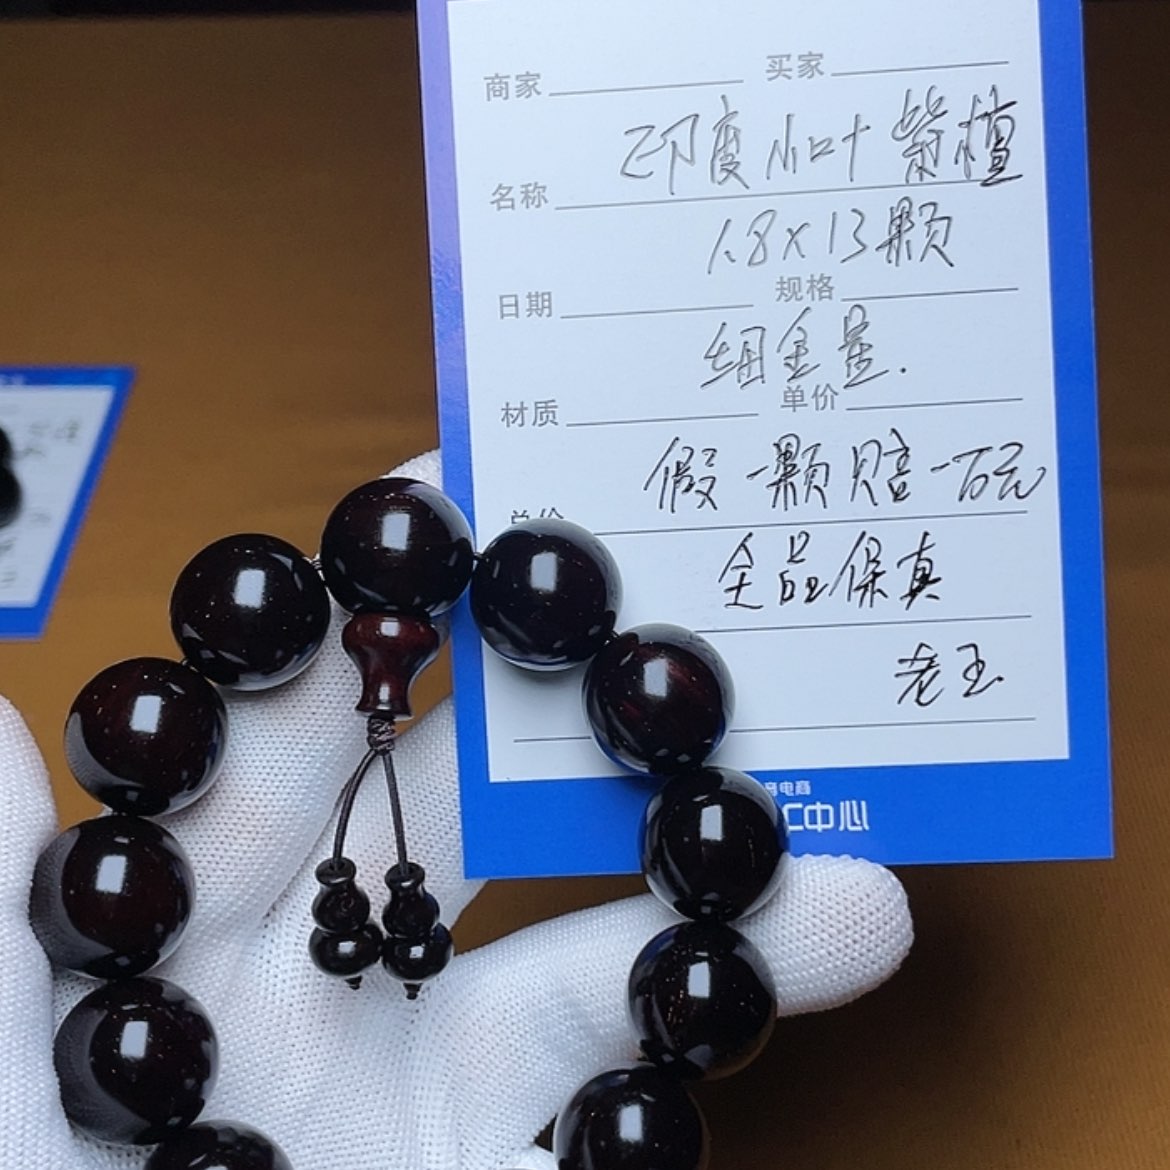 商家 买家
印度小叶紫檀
名称
1.8×13颗
日期 规格
细金星.
材质 单价
假一颗赔一百元
总价
全品保真
老玉
电商
C中心